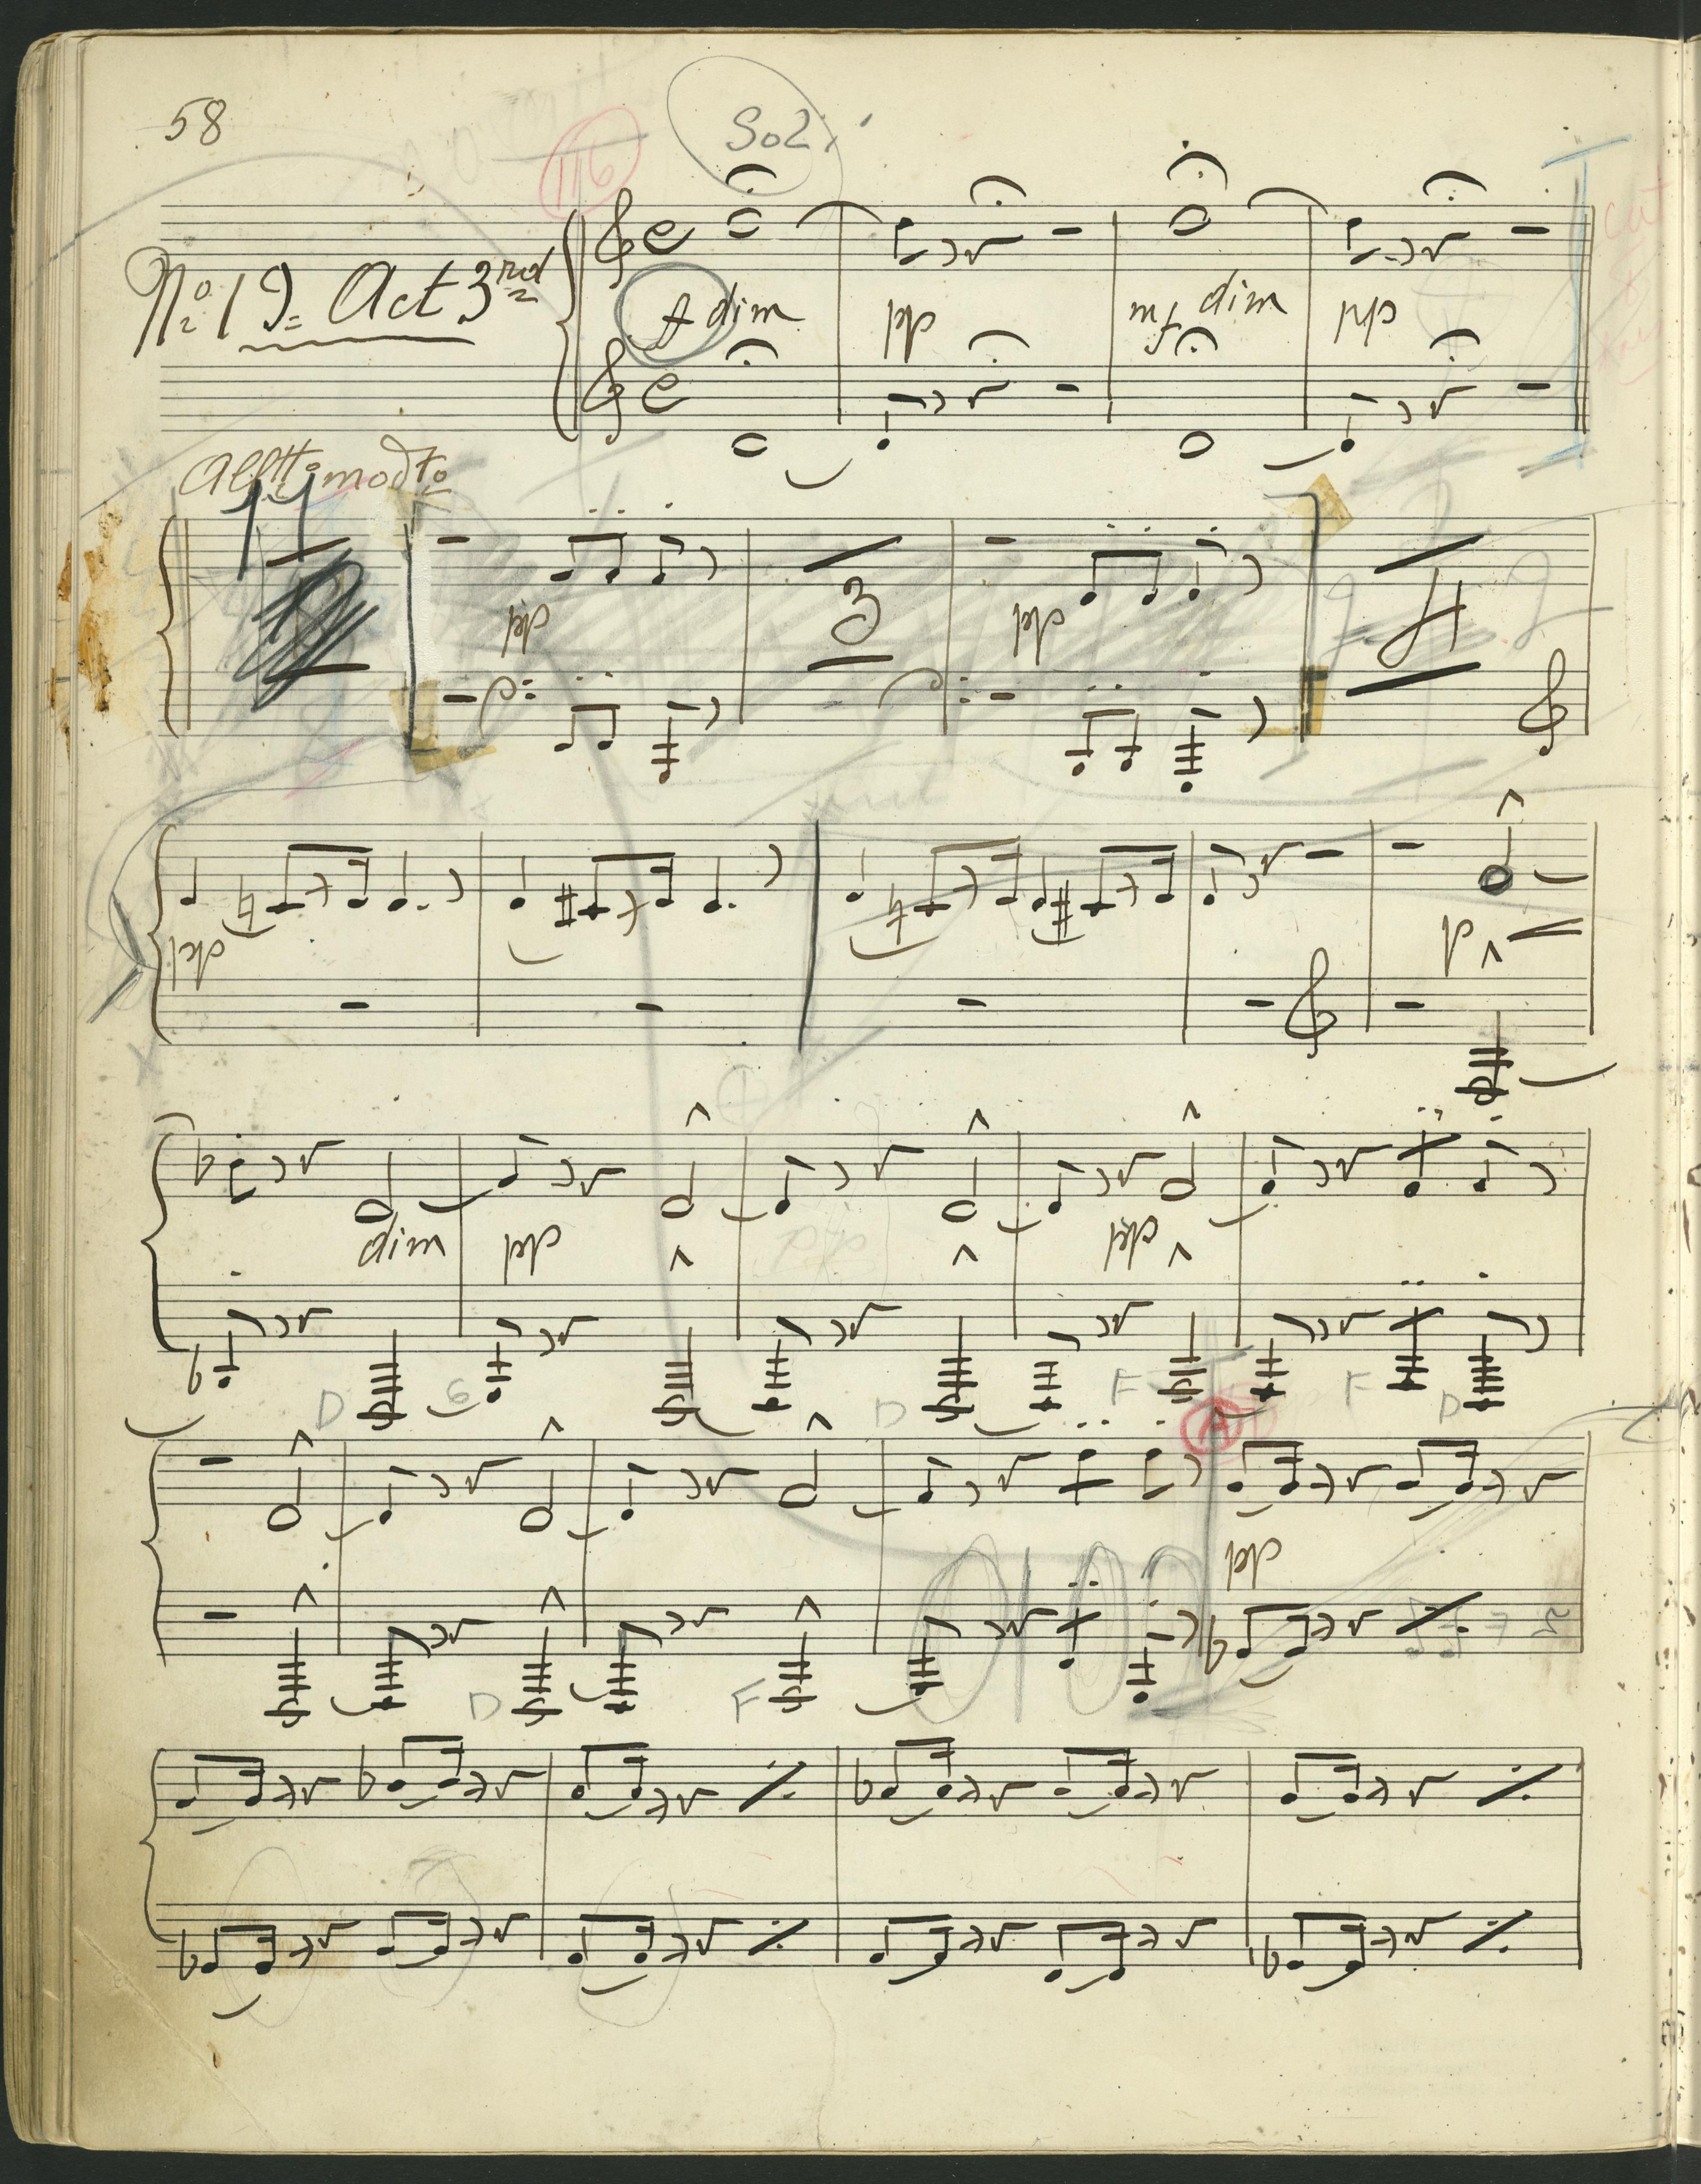 58
116
Soli
No. 19. Act 3rd
f dim pp mf dim pp
cut
Alltto modto
pp 3 pp 4
pp p
dim pp pp
D G D F F D
A
pp
D F